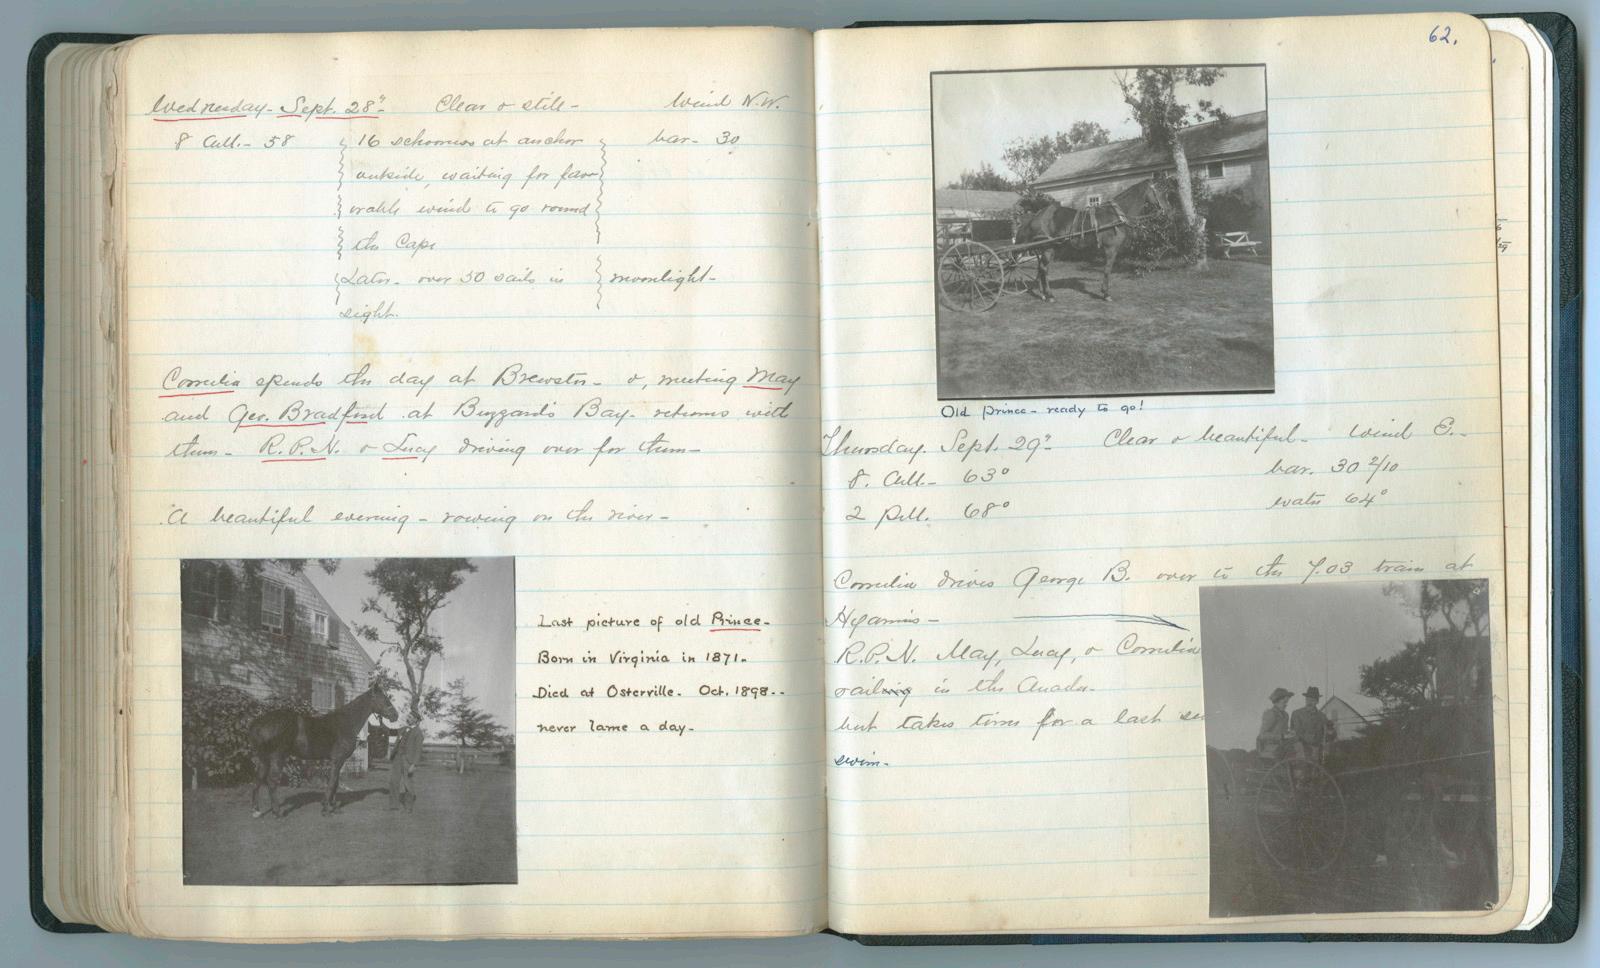 Wednesday - Sept. 28" - Clear & still - Wind N.W.
8 A.M. - 58 16 schooners at anchor bar - 30
outside, waiting for favor
orable wind to go round
the Cape
Later - over 50 sails in moonlight -
sight.
Cornelia spends the day at Brewster - &, meeting May
and Geo. Bradford at Buzzards Bay - returns with
them - R.P.N. & Lucy driving over for them -
A beautiful evening - rowing on the river -
Last picture of old Prince -
Born in Virginia in 1871 -
Died at Osterville - Oct. 1898 -
never lame a day -
62.
Old Prince - ready to go!
Thursday. Sept. 29" - Clear & beautiful - Wind E. -
8. A.M. - 63° bar. 30 2/10
2 P.M. 68° water 64°
Cornelia drives George B. over to the 7.03 train at
Hyannis -
R.P.N. May, Lucy, & Cornelia
sailing in the
but takes time for a last
swim -